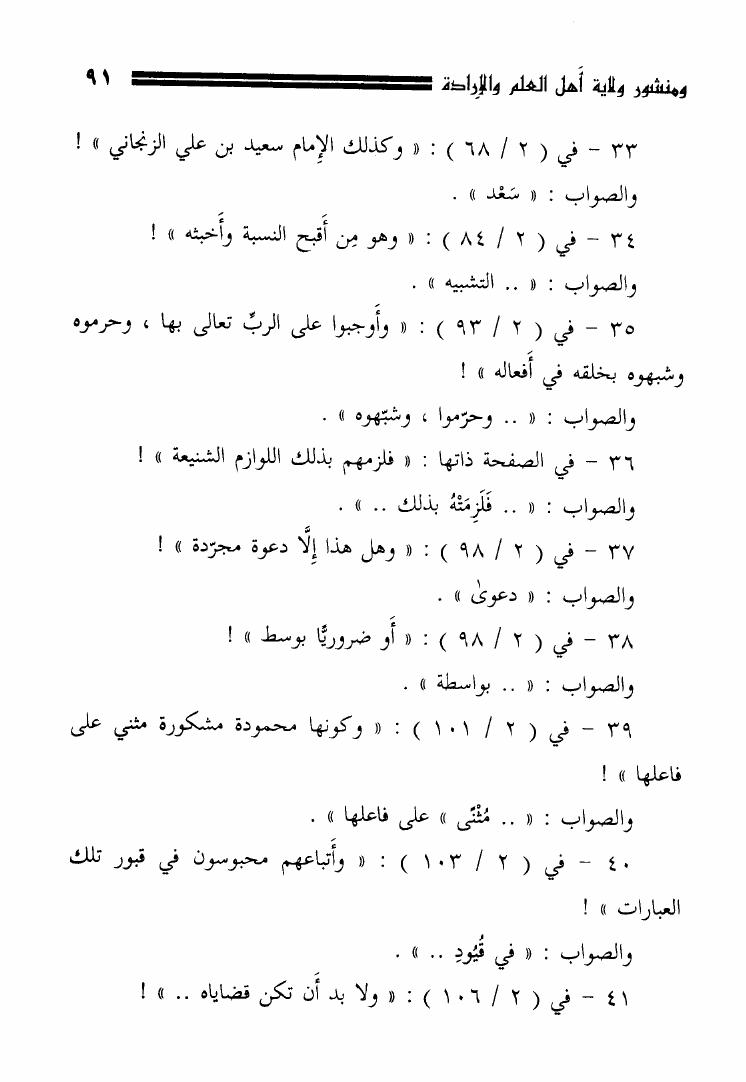 ومنشور ولاية أهل العلم والإرادة ٩١
٣٣ - في ( ٢ / ٦٨ ) : « وكذلك الإمام سعيد بن علي الزنجاني » !
والصواب : « سَعْد » .
٣٤ - في ( ٢ / ٨٤ ) : « وهو مِن أَقبح النسبة وأَخبثه » !
والصواب : « .. التشبيه » .
٣٥ - في ( ٢ / ٩٣ ) : « وأَوجبوا على الربِّ تعالى بها ، وحرموه
وشبهوه بخلقه في أَفعاله » !
والصواب : « .. وحرّموا ، وشبّهوه » .
٣٦ - في الصفحة ذاتها : « فلزمهم بذلك اللوازم الشنيعة » !
والصواب : « .. فَلَزِمَتْهُ بذلك .. » .
٣٧ - في ( ٢ / ٩٨ ) : « وهل هذا إلَّا دعوة مجرّدة » !
والصواب : « دعوىٰ » .
٣٨ - في ( ٢ / ٩٨ ) : « أَو ضروريًّا بوسط » !
والصواب : « .. بواسطة » .
٣٩ - في ( ٢ / ١٠١ ) : « وكونها محمودة مشكورة مثني على
فاعلها » !
والصواب : « .. مُثْنًى » على فاعلها » .
٤٠ - في ( ٢ / ١٠٣ ) : « وأَتباعهم محبوسون في قبور تلك
العبارات » !
والصواب : « في قُيُودِ .. » .
٤١ - في ( ٢ / ١٠٦ ) : « ولا بد أَن تكن قضاياه .. » !